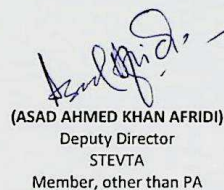 (ASAD AHMED KHAN AFRIDI)
Deputy Director
STEVTA
Member, other than PA